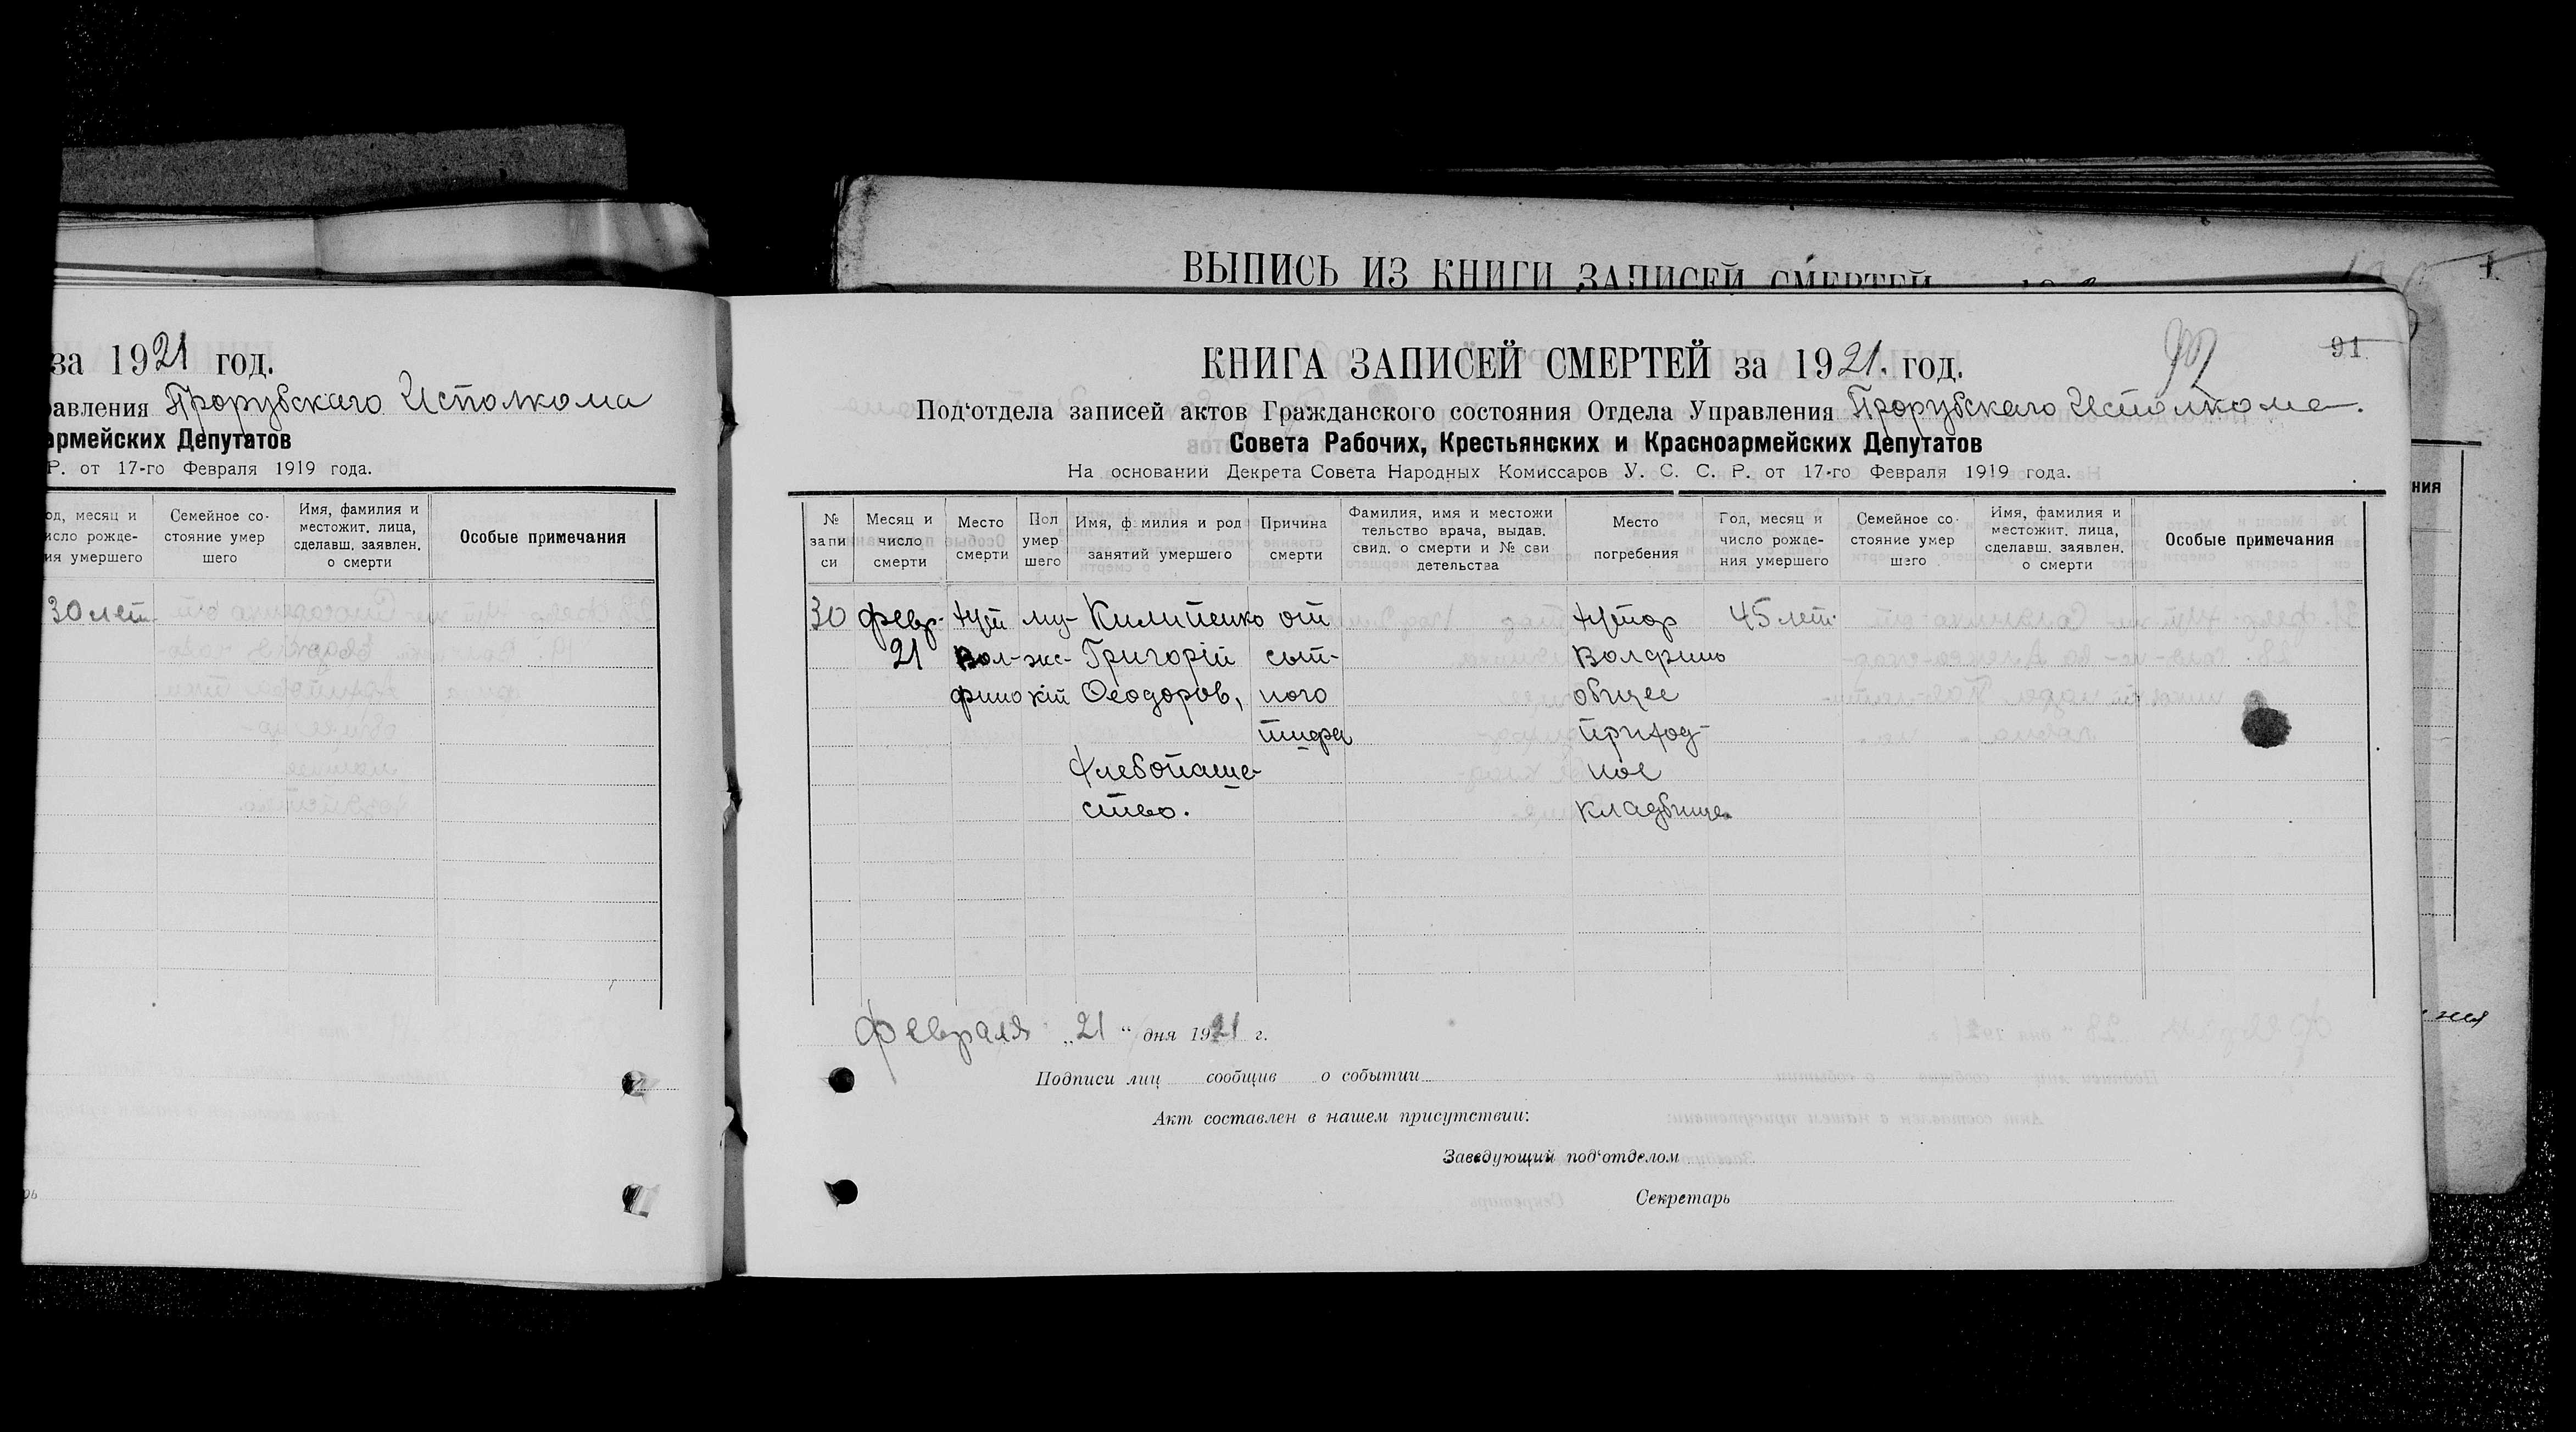 ВЫПИСЬ ИЗ КНИГИ ЗАПИСЕЙ СМЕРТЕЙ
за 1921 год.
авления Прорубскаго Исполкома
армейских Депутатов
Р. от 17-го Февраля 1919 года.
од, месяц и
исло рожде-
ия умершего
Семейное со-
стояние умер
шего
Имя, фамилия и
местожит. лица,
сделавш. заявлен.
о смерти
Особые примечания
30 лет.
92
91
КНИГА ЗАПИСЕЙ СМЕРТЕЙ за 1921. год.
Под‘отдела записей актов Гражданского состояния Отдела Управления Прорубскаго Исполкома.
Совета Рабочих, Крестьянских и Красноармейских Депутатов
На основании Декрета Совета Народных Комиссаров У. С. С. Р. от 17-го Февраля 1919 года.
№
запи
си
Месяц и
число
смерти
Место
смерти
Пол
умер
шего
Имя, ф милия и род
занятий умершего
Причина
смерти
Фамилия, имя и местожи
тельство врача, выдав.
свид. о смерти и № сви
детельства
Место
погребения
Год, месяц и
число рожде-
ния умершего
Семейное со-
стояние умер
шего
Имя, фамилия и
местожит. лица,
сделавш. заявлен.
о смерти
Особые примечания
ния
30 февр. хут му- Килипенко от хутор 45 лет.
21 Вол- жс- Григорій сып- Волфино
фино кій Ѳеодоров, ного общее
тифа приход-
Хлебопаше- ное
ство. кладбище.
Февраля „21“ дня 1921 г.
Подписи лиц сообщив о событии
Акт составлен в нашем присутствии:
Заведующий под‘отделом
Секретарь